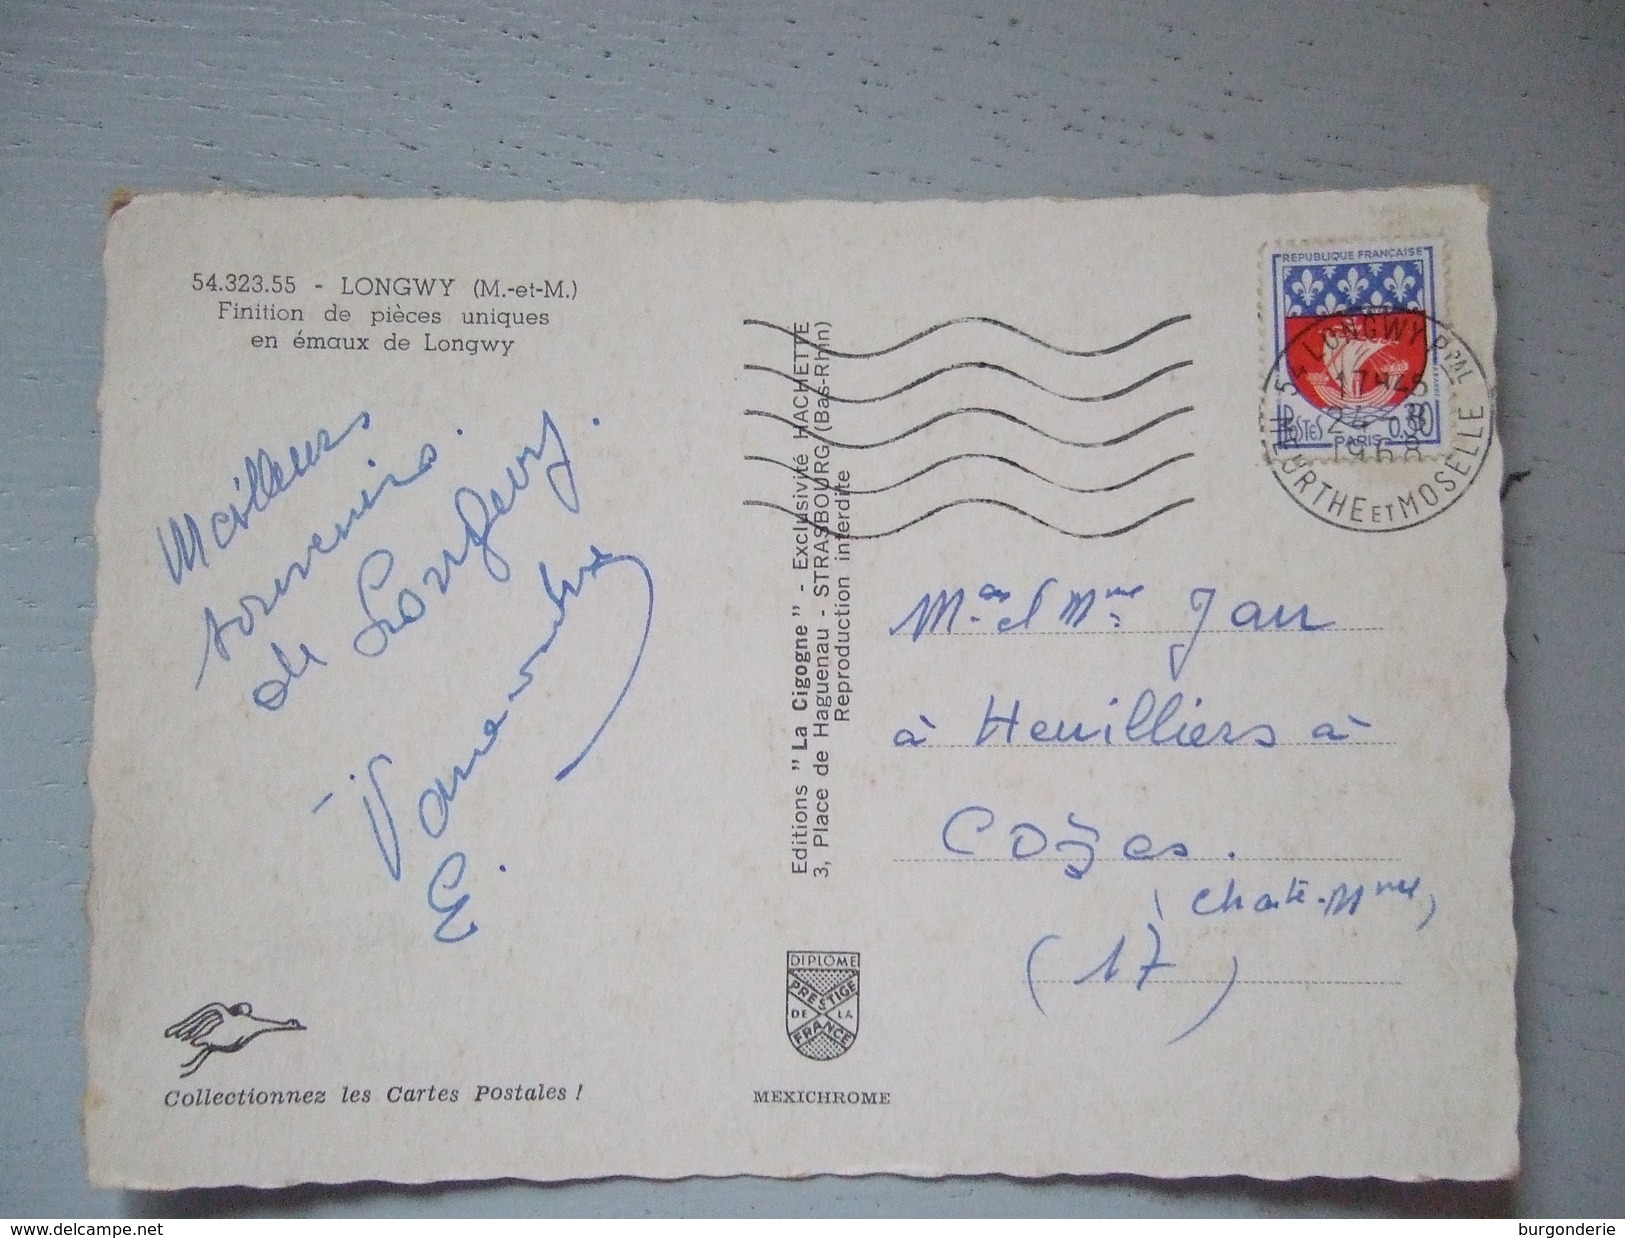 54.323.55 - LONGWY (M.-et-M.)
Finition de pièces uniques
en émaux de Longwy
Meilleurs
souvenirs.
de Longwy.
E.
Collectionnez les Cartes Postales !
Editions "La Cigogne" - Exclusivité HACHETTE
3, Place de Haguenau - STRASBOURG (Bas-Rhin)
Reproduction interdite
DIPLOME
PRESTIGE
DE LA
FRANCE
MEXICHROME
REPUBLIQUE FRANÇAISE
POSTES 0,30
PARIS
54 LONGWY PPAL
17H45
24 8
1968
MEURTHE ET MOSELLE
et Mme Jau
à Heuilliers à
Cozes.
Chte-Mme,
(17)
www.delcampe.net
burgonderie